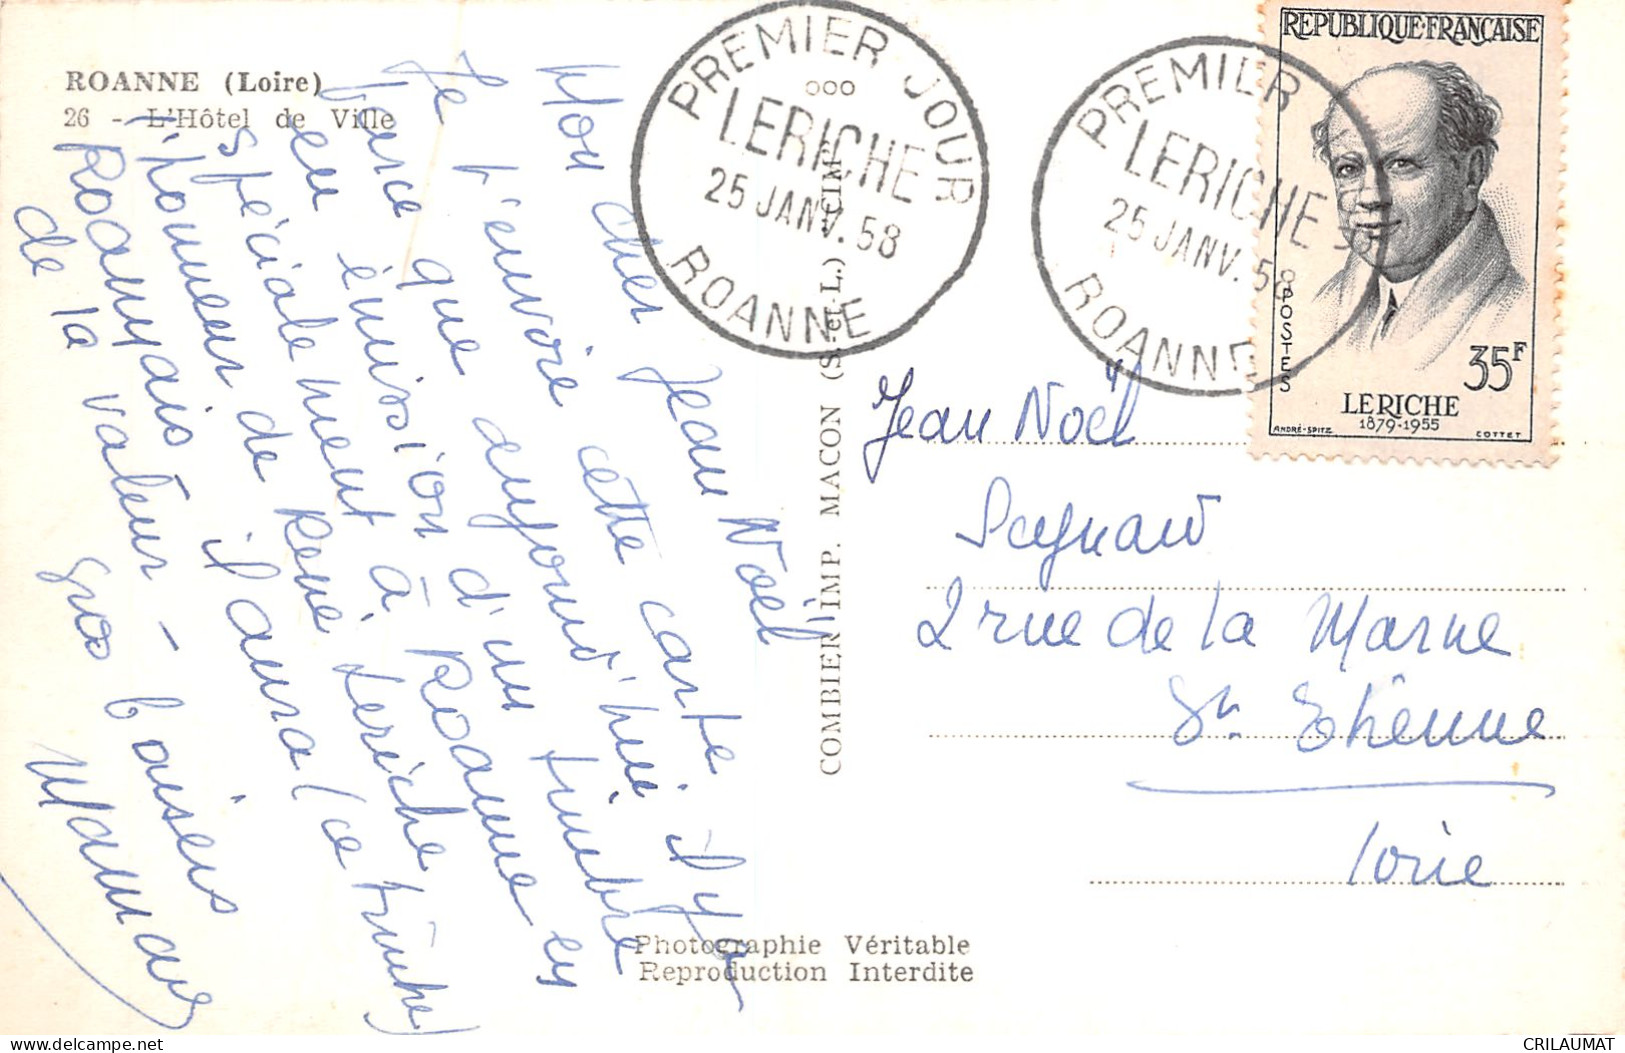 ROANNE (Loire)
26 - L'Hôtel de Ville
Mon cher Jean Noël
Je t'envoie cette carte
parce que aujourd'hui il y a
eu émission d'un timbre
spécialement à Roanne en
l'honneur de René Leriche
Roannais il aura (ce timbre)
de la valeur -
gros baisers
Maman
PREMIER JOUR
LERICHE
25 JANV. 58
ROANNE
PREMIER
LERICHE
25 JANV. 58
ROANNE
COMBIER IMP. MACON (S. et L.) CIM
REPUBLIQUE FRANÇAISE
POSTES
35F
LERICHE
1879-1955
ANDRÉ-SPITZ
COTTET
Jean Noël
2 rue de la Marne
St Etienne
Loire
Photographie Véritable
Reproduction Interdite
CRILAUMAT